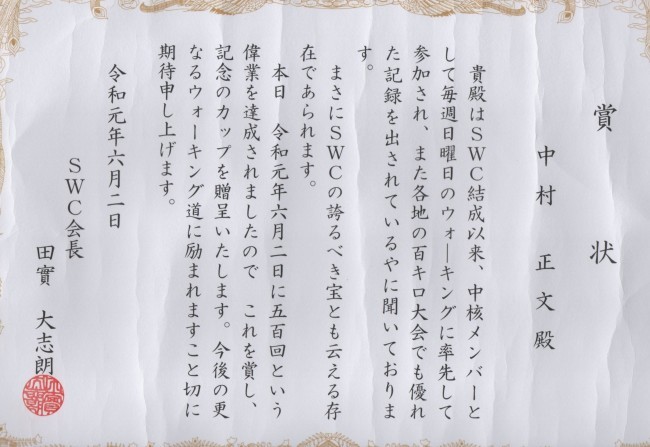 賞状
中村　正文殿
貴殿はＳＷＣ結成以来、中核メンバーと
して毎週日曜日のウォーキングに率先して
参加され、また各地の百キロ大会でも優れ
た記録を出されているやに聞いておりま
す。
まさにＳＷＣの誇るべき宝とも云える存
在であられます。
本日　令和元年六月二日に五百回という
偉業を達成されましたので　これを賞し、
記念のカップを贈呈いたします。今後の更
なるウォーキング道に励まれますこと切に
期待申し上げます。
令和元年六月二日
ＳＷＣ会長
田實　大志朗